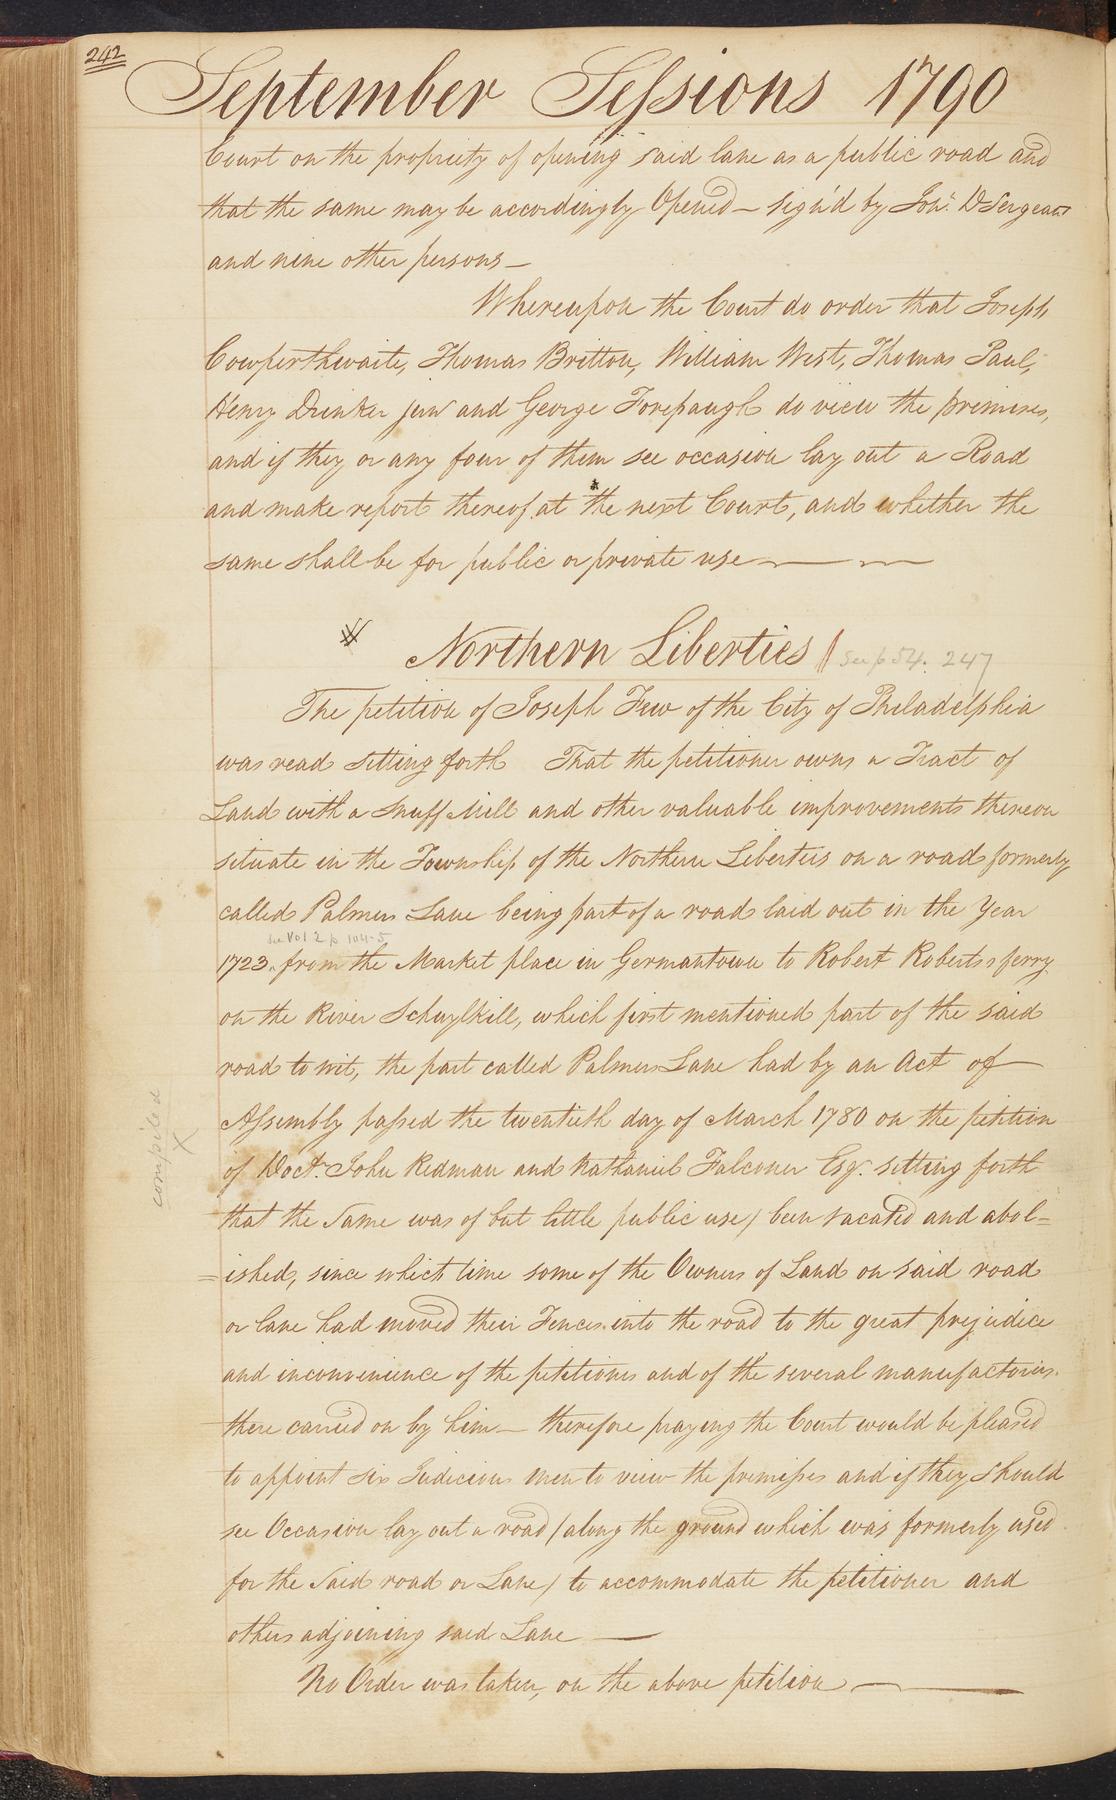 242
September Sessions 1790
Court on the propriety of opening said lane as a public road and
that the same may be accordingly Opened — sign'd by Jon. D Sergeant
and nine other persons —
Whereupon the Court do order that Joseph
Cowperthwaite, Thomas Britton, William West, Thomas Paul,
Henry Drinker junr and George Forepaugh do view the premises,
and if they or any four of them see occasion lay out a Road
and make report thereof at the next Court, and whether the
same shall be for public or private use —
Northern Liberties see p 54. 247
The petition of Joseph Few of the City of Philadelphia
was read setting forth That the petitioner owns a Tract of
Land with a Snuff Mill and other valuable improvements thereon
situate in the Township of the Northern Liberties on a road formerly
called Palmers Lane being part of a road laid out in the Year
see Vol 2 p 104-5
1723. from the Market place in Germantown to Robert Roberts's ferry
on the River Schuylkill, which first mentioned part of the said
road to wit, the part called Palmers Lane had by an Act of
Assembly passed the twentieth day of March 1780 on the petition
of Doct. John Redman and Nathaniel Falconer Esqr. setting forth
that the Same was of but little public use) been vacated and abol=
=ished, since which time some of the Owners of Land on said road
or lane had moved their Fences into the road to the great prejudice
and inconvenience of the petitioner and of the several manufactories
there carried on by him — therefore praying the Court would be pleased
to appoint six Judicious men to view the premisses and if they should
see Occasion lay out a road (along the ground which was formerly used
for the Said road or Lane) to accommodate the petitioner and
others adjoining said Lane —
No Order was taken, on the above petition —
compiled
X